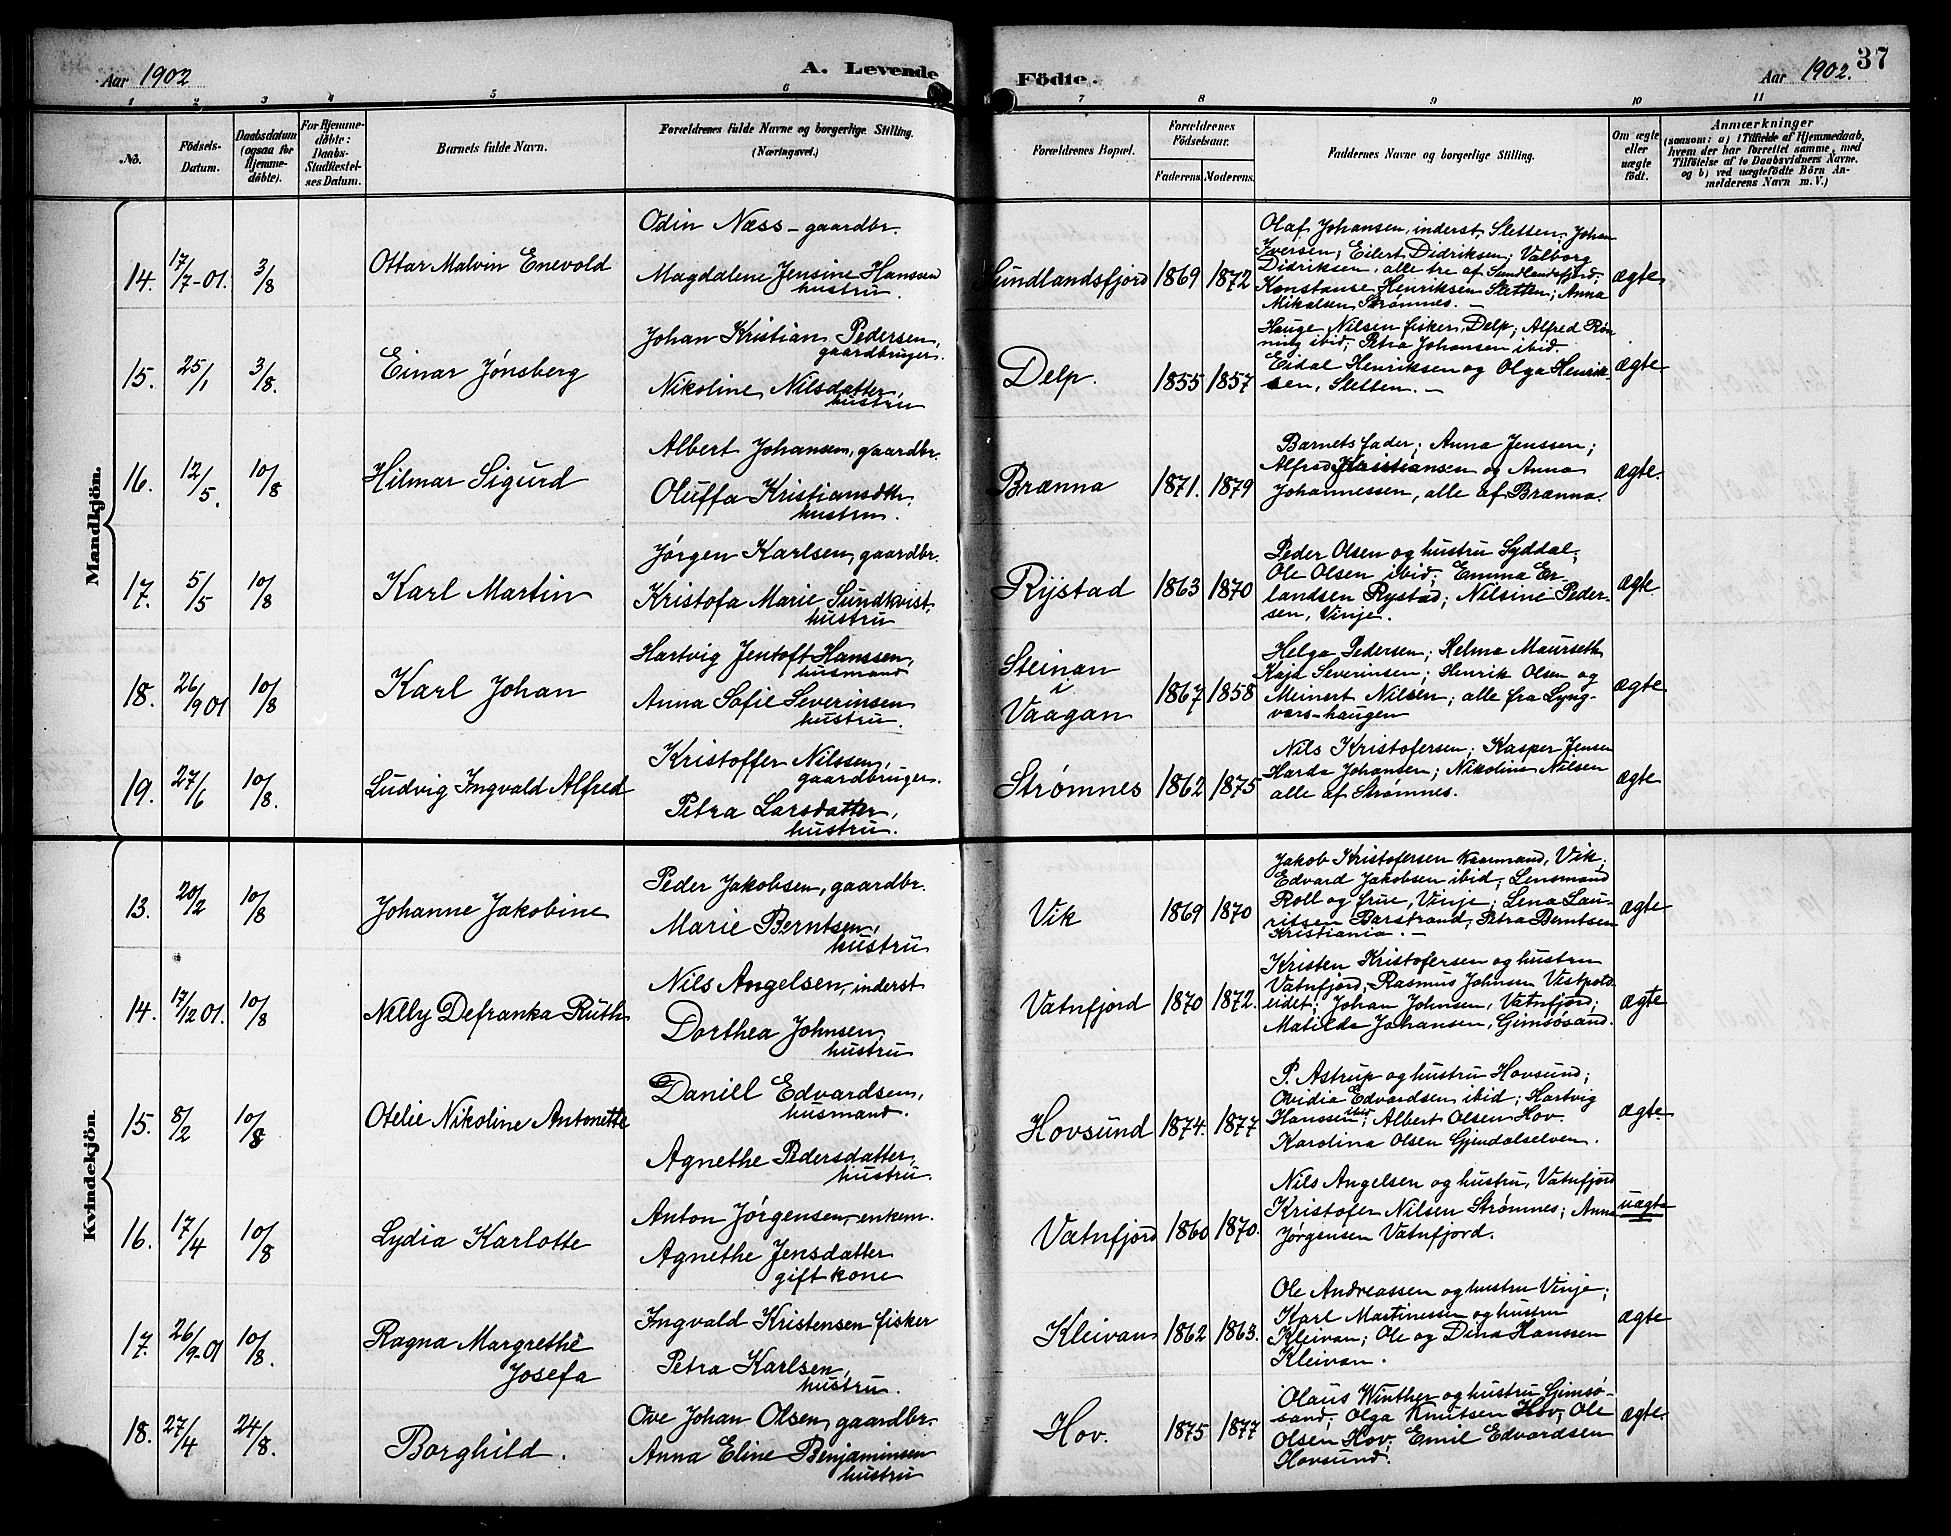 Aar 1902
A. Levende
Födte.
Aar 1902.
37
1 2 3 4 5 6 7 8 9 10 11
No.
Födsels-
Datum.
Daabsdatum
(ogsaa for
Hjemme-
döbte).
For Hjemme-
döbte:
Daabs-
Stadfæstel-
ses Datum.
Barnets fulde Navn.
Forældrenes fulde Navne og borgerlige Stilling.
(Næringsvei.)
Forældrenes Bopæl.
Forældrenes
Födselsaar.
Faderens. Moderens.
Faddernes Navne og borgerlige Stilling.
Om ægte
eller
uægte
födt.
Anmærkninger
(saasom: a) i Tilfælde af Hjemmedaab,
hvem der har forrettet samme, med
Tilföielse af to Daabsvidners Navne.
og b) ved uægtefödte Börn An-
melderens Navn m. V.)
Mandkjön.
14. 17/7-01. 3/8 Ottar Malvin Enevold
Odin Næss - gaardbr.
Magdalene Jensine Hanssen
hustru.
Sundlandsfjord 1869 1872
Olaf Johansen, inderst, Sletten; Johan
Iversen; Eilert Didriksen; Valborg
Didriksen, alle tre af Sundlandsfjord;
Konstanse Henriksen Sletten; Anna
Mikalsen Strømnes. -
ægte
15. 25/1 3/8. Einar Jønsberg
Johan Kristian Pedersen,
gaardbruger.
Nikoline Nilsdatter,
hustru
Delp. 1855 1857
Hauge Nilsen fisker, Delp; Alfred Røn-
ning ibid; Petra Johansen ibid.
Eidal Henriksen og Olga Henrik-
sen, Sletten. -
ægte
16. 12/5. 10/8 Hilmar Sigurd
Albert Johansen, gaardbr.
Oluffa Kristiansdtr,
hustru.
Brænna 1871. 1879
Barnets fader; Anna Jenssen;
Alfred Kristiansen og Anna
Johannessen, alle af Brænna.
ægte.
17. 5/5 10/8 Karl Martin
Jørgen Karlsen, gaardbr.
Kristofa Marie Sundkvist,
hustru
Rystad 1863 1870
Peder Olsen og hustru Syddal;
Ole Olsen ibid; Emma Er-
landsen Rystad; Nilsine Peder-
sen, Vinje.
ægte
18. 26/9 01 10/8 Karl Johan
Hartvig Jentoft Hanssen,
husmand
Anna Sofie Severinsen
hustru.
Steinan
i
Vaagan
1867 1858
Helga Pedersen; Helma Maurseth
Kajd Severinsen; Henrik Olsen og
Meinert Nilsen; alle fra Lyng-
værs-haugen
ægte
19. 27/6 10/8. Ludvig Ingvald Alfred
Kristoffer Nilssen,
gaardbruger.
Petra Larsdatter,
hustru.
Strømnes 1862 1875
Nils Kristofersen; Kasper Jensen
Harda Johansen; Nikoline Nilsen
alle af Strømnes.
ægte
Kvindekjön.
13. 20/2 10/8 Johanne Jakobine
Peder Jakobsen, gaardbr.
Marie Berntsen,
hustru
Vik 1869 1870
Jakob Kristofersen kaarmand, Vik;
Edvard Jakobsen ibid; Lensmand
Roll og frue, Vinje; Lena Lau-
ritsen Barstrand; Petra Berntsen
Kristiania. -
ægte
14. 17/12 01. 10/8 Nelly Defranka Ruth
Nils Angelsen, inderst
Dorthea Johnsen,
hustru
Vatnfjord 1870 1872.
Kristen Kristofersen og hustru
Vatnfjord; Rasmus Johnsen Vestpold-
eidet; Johan Johnsen, Vatnfjord;
Matilde Johansen, Gimsøsand.
ægte
15. 8/2 10/8 Otelie Nikoline Antonette
Daniel Edvardsen,
husmand.
Agnethe Pedersdatter,
hustru.
Hovsund 1874. 1877
P. Astrup og hustru Hovsund;
Ovidia Edvardsen ibid; Hartvig
Hanssen ibid; Albert Olsen Hov.
Karolina Olsen Gjendalselven.
ægte.
16. 17/4 10/8 Lydia Karlotte
Anton Jørgensen, enkem.
Agnethe Jensdatter
gift kone
Vatnfjord 1860 1870.
Nils Angelsen og hustru, Vatnfjord
Kristofer Nilsen Strømnes; Anna
Jørgensen Vatnfjord.
uægte
17. 26/9-01 10/8. Ragna Margrethe
Josefa
Ingvald Kristensen fisker
Petra Karlsen,
hustru.
Kleivan 1862 1863.
Ole Andreassen og hustru Vinje;
Karl Martinessen og hustru
Kleivan; Ole og Dina Hanssen
Kleivan.
ægte
18. 27/4 24/8. Borghild.
Ove Johan Olsen, gaardbr.
Anna Eline Benjaminsen
hustru
Hov. 1875 1877
Olaus Winther og hustru Gimsø-
sand; Olga Knutsen Hov; Ole
Olsen Hov; Emil Edvardsen
Hovsund.
ægte.